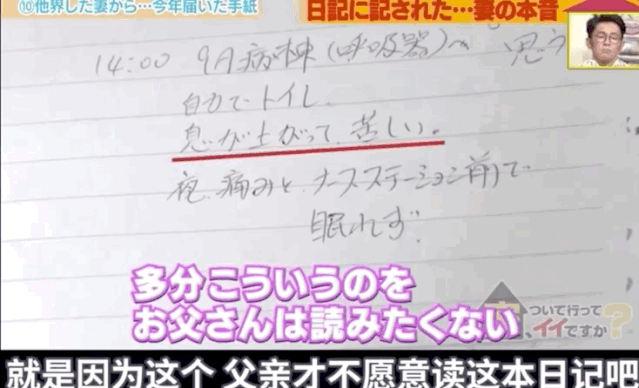 ⑩他界した妻から…今年届いた手紙
日記に記された…妻の本音
思う
14:00 9A病棟(呼吸器)へ
自力でトイレ
息が上がって、苦しい。
夜、痛みと、ナースステーション前で
眠れず
多分こういうのを
お父さんは読みたくない
家、ついて行って
イイですか?
就是因为这个 父亲才不愿意读这本日记吧